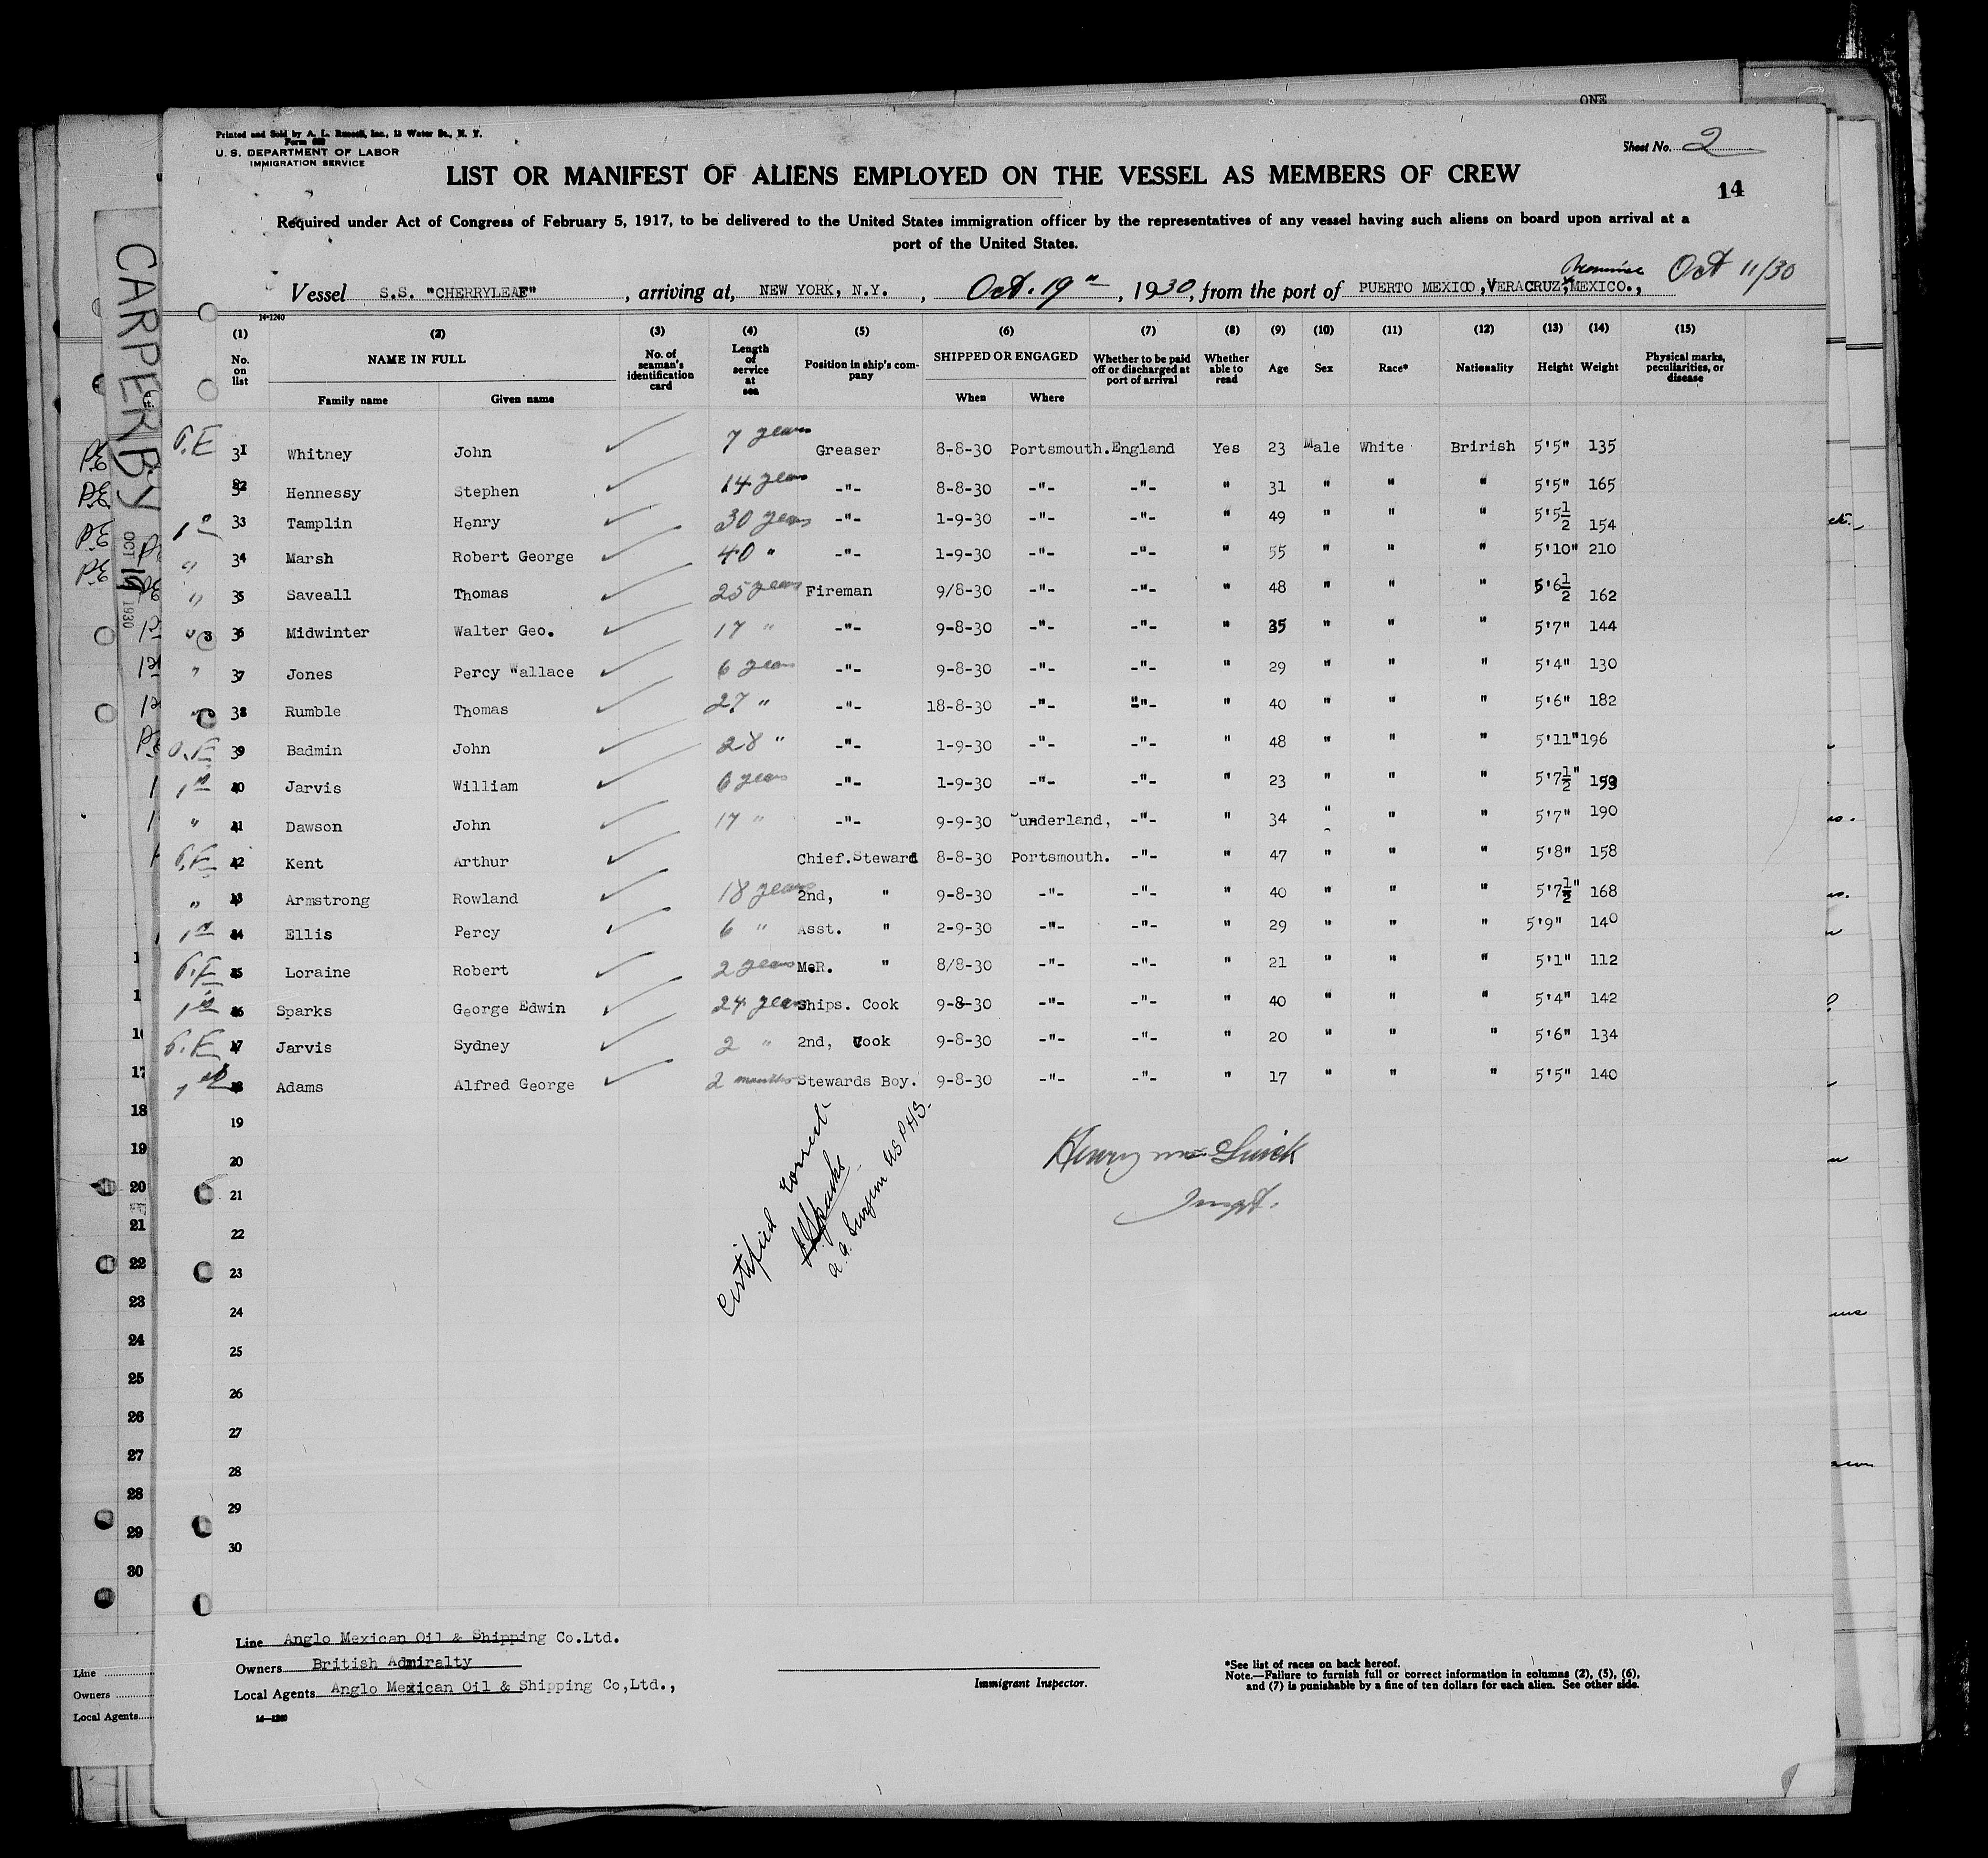 ONE
Printed and Sold by A. L. Russell, Inc., 13 Water St., N. Y.
U. S. DEPARTMENT OF LABOR
IMMIGRATION SERVICE
Sheet No. 2
LIST OR MANIFEST OF ALIENS EMPLOYED ON THE VESSEL AS MEMBERS OF CREW
14
Required under Act of Congress of February 5, 1917, to be delivered to the United States immigration officer by the representatives of any vessel having such aliens on board upon arrival at a
port of the United States.
Vessel S.S. "CHERRYLEAF", arriving at, NEW YORK, N.Y., Oct. 19th, 1930, from the port of PUERTO MEXICO, VERACRUZ, MEXICO., Oct 11/30
14-1240
(1) (2) (3) (4) (5) (6) (7) (8) (9) (10) (11) (12) (13) (14) (15)
No. on list NAME IN FULL No. of seaman's identification card Length of service at sea Position in ship's company SHIPPED OR ENGAGED Whether to be paid off or discharged at port of arrival Whether able to read Age Sex Race* Nationality Height Weight Physical marks, peculiarities, or disease
Family name Given name When Where
31 Whitney John 7 years Greaser 8-8-30 Portsmouth.England Yes 23 Male White Brirish 5'5" 135
32 Hennessy Stephen 14 years -"- 8-8-30 -"- -"- " 31 " " " 5'5" 165
33 Tamplin Henry 30 years -"- 1-9-30 -"- -"- " 49 " " " 5'5½ 154
34 Marsh Robert George 40 " -"- 1-9-30 -"- -"- " 55 " " " 5'10" 210
35 Saveall Thomas 25 years Fireman 9/8-30 -"- -"- " 48 " " " 5'6½ 162
36 Midwinter Walter Geo. 17 " -"- 9-8-30 -"- -"- " 35 " " " 5'7" 144
37 Jones Percy Wallace 6 years -"- 9-8-30 -"- -"- " 29 " " " 5'4" 130
38 Rumble Thomas 27 " -"- 18-8-30 -"- -"- " 40 " " " 5'6" 182
39 Badmin John 28 " -"- 1-9-30 -"- -"- " 48 " " " 5'11" 196
40 Jarvis William 6 years -"- 1-9-30 -"- -"- " 23 " " " 5'7½" 159
41 Dawson John 17 " -"- 9-9-30 Sunderland, -"- " 34 " " " 5'7" 190
42 Kent Arthur Chief.Steward 8-8-30 Portsmouth. -"- " 47 " " " 5'8" 158
43 Armstrong Rowland 18 years 2nd, " 9-8-30 -"- -"- " 40 " " " 5'7½" 168
44 Ellis Percy 6 " Asst. " 2-9-30 -"- -"- " 29 " " " 5'9" 140
45 Loraine Robert 2 years MeR. " 8/8-30 -"- -"- " 21 " " " 5'1" 112
46 Sparks George Edwin 24 years Ships. Cook 9-8-30 -"- -"- " 40 " " " 5'4" 142
47 Jarvis Sydney 2 " 2nd, Cook 9-8-30 -"- -"- " 20 " " " 5'6" 134
48 Adams Alfred George 2 months Stewards Boy. 9-8-30 -"- -"- " 17 " " " 5'5" 140
19
20
21
22
23
24
25
26
27
28
29
30
Certified Correct
a. a. Surgeon USPHS.
CARPER BY
OCT 19 1930
Line Anglo Mexican Oil & Shipping Co.Ltd.
Owners British Admiralty
Local Agents Anglo Mexican Oil & Shipping Co,Ltd.,
14-1240
Immigrant Inspector.
*See list of races on back hereof.
Note.—Failure to furnish full or correct information in columns (2), (5), (6),
and (7) is punishable by a fine of ten dollars for each alien. See other side.
18
19
20
21
22
23
24
25
26
27
28
29
30
Line
Owners
Local Agents